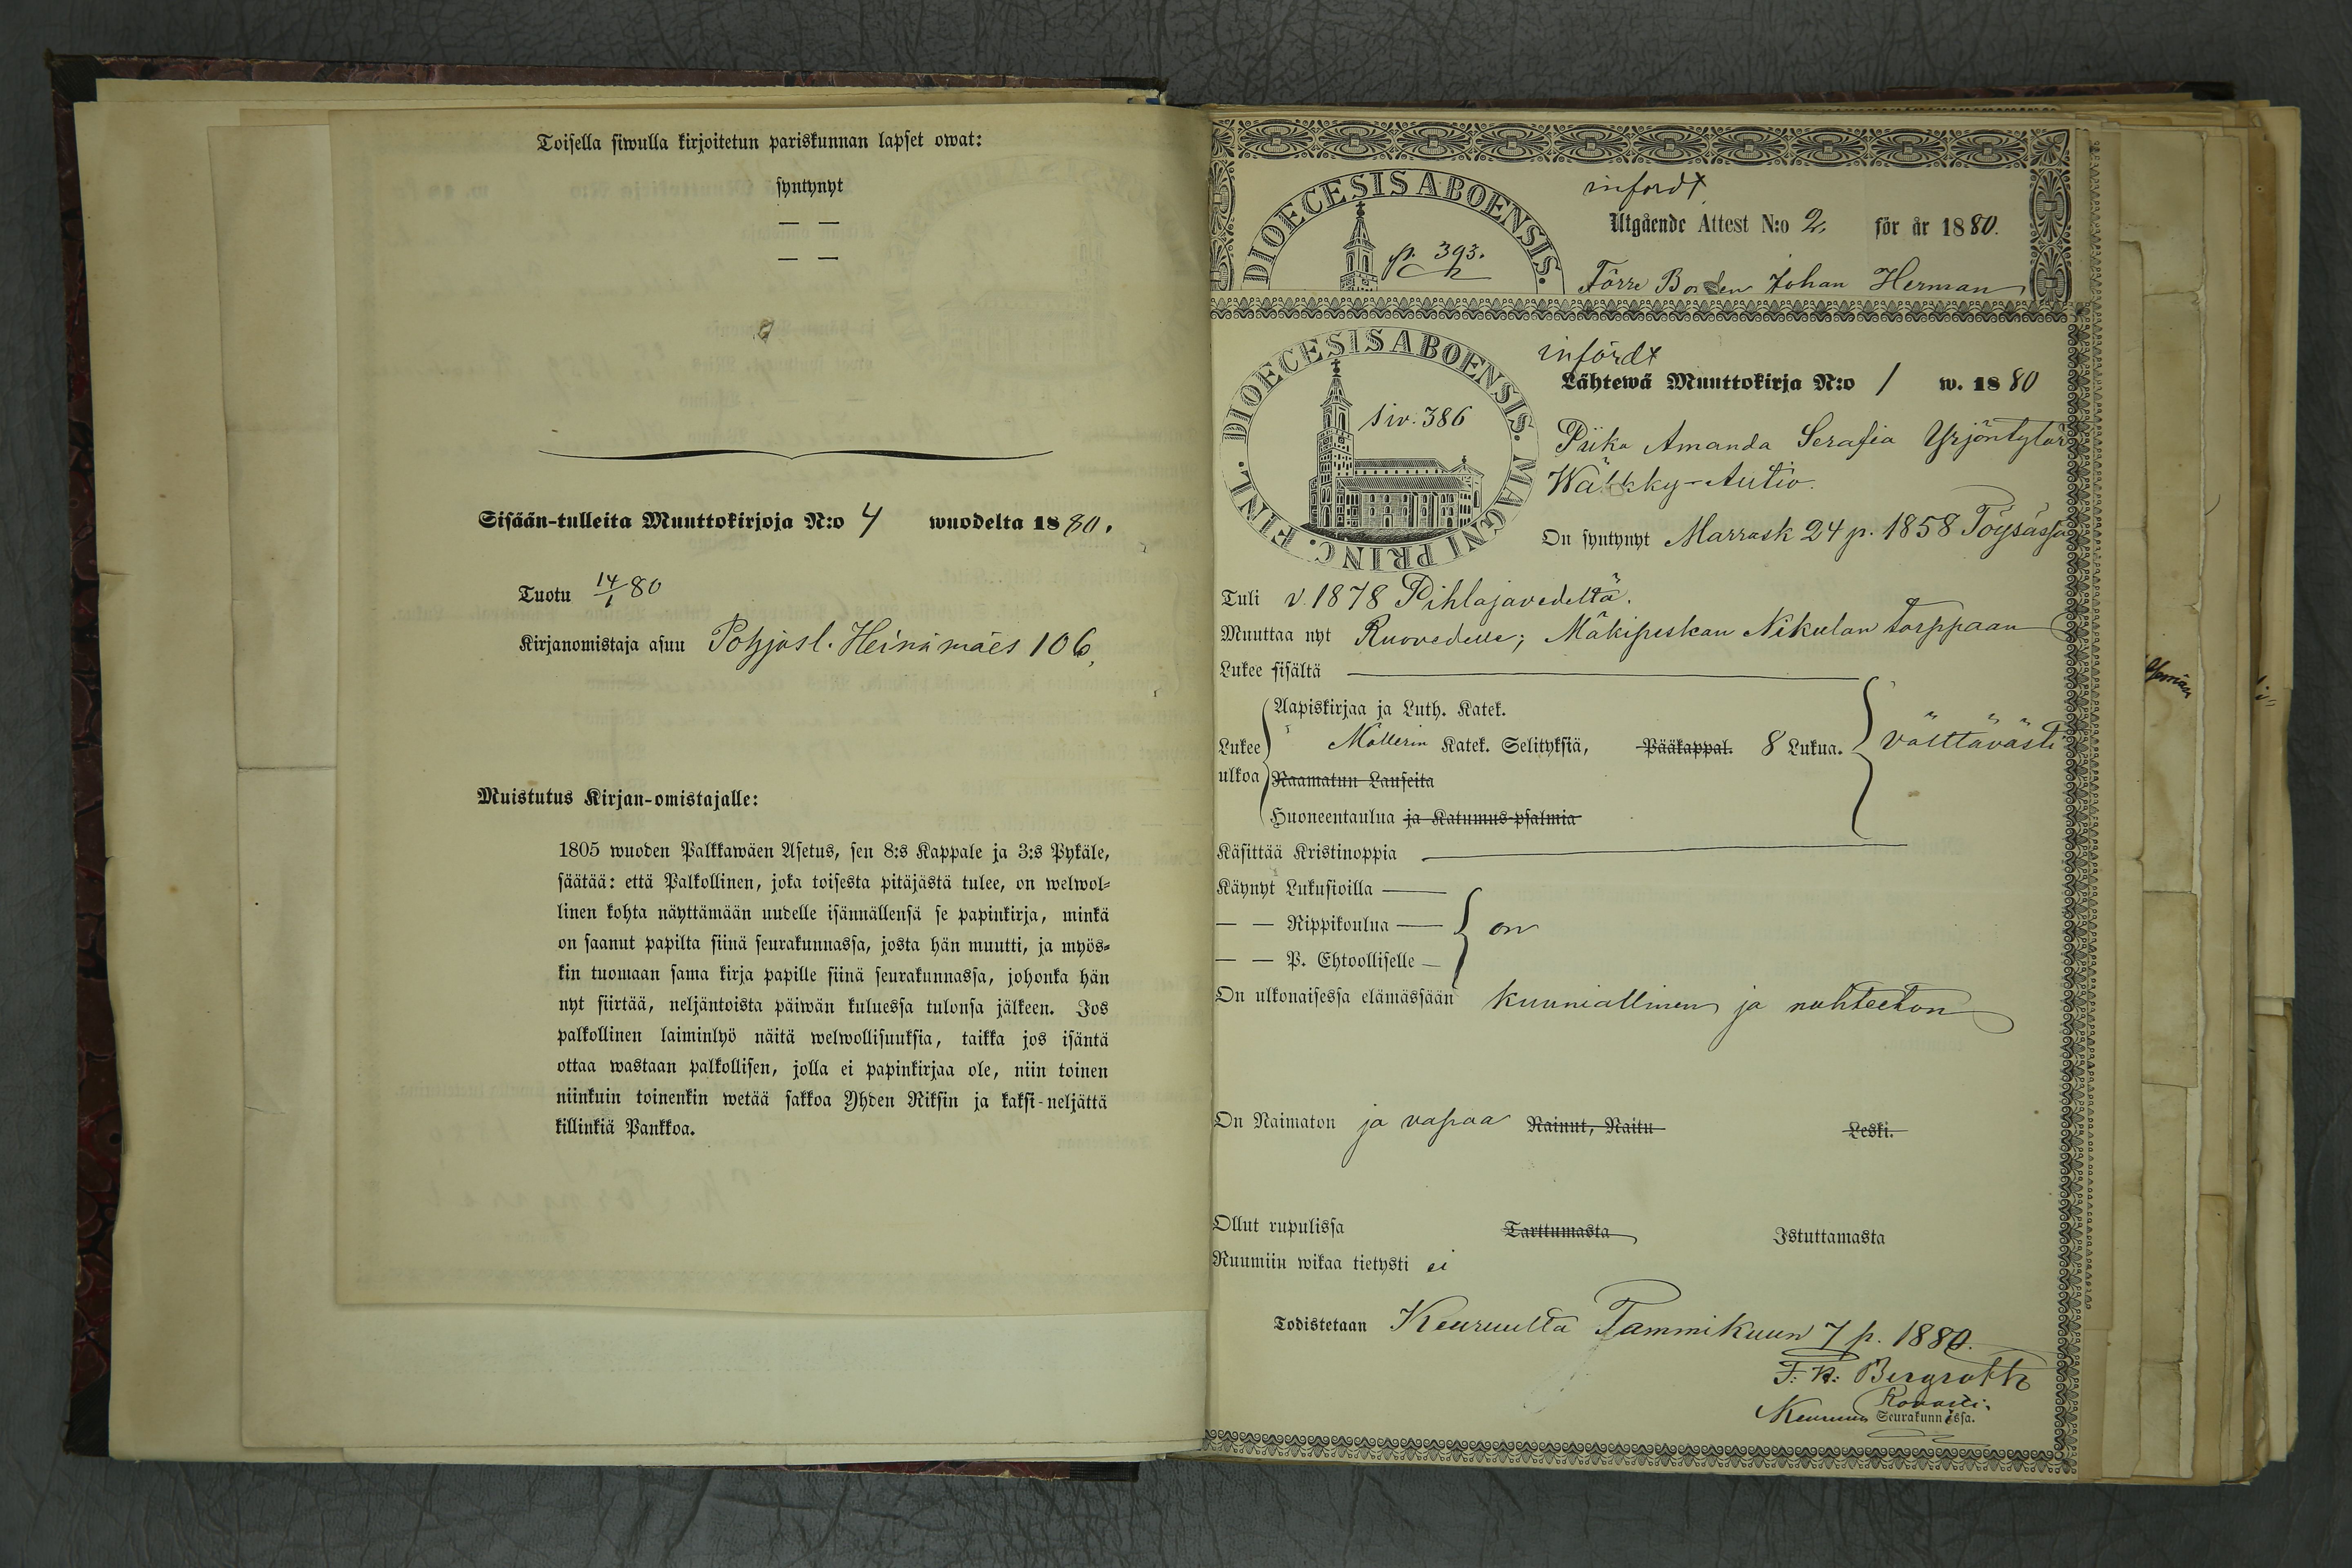 Toisella siwulla kirjoitetun pariskunnan lapset owat:
syntynyt
— —
— —
Sisään-tulleita Muuttokirjoja N:o 4 wuodelta 1880.
Tuotu 14/1 80
Kirjanomistaja asuu Pohjasl. Heinämäes 106,
Muistutus Kirjan-omistajalle:
1805 wuoden Palkkawäen Asetus, sen 8:s Kappale ja 3:s Pykäle,
säätää: että Palkollinen, joka toisesta pitäjästä tulee, on welwol-
linen kohta näyttämään uudelle isännällensä se papinkirja, minkä
on saanut papilta siinä seurakunnassa, josta hän muutti, ja myös-
kin tuomaan sama kirja papille siinä seurakunnassa, johonka hän
nyt siirtää, neljäntoista päiwän kuluessa tulonsa jälkeen. Jos
palkollinen laiminlyö näitä welwollisuuksia, taikka jos isäntä
ottaa wastaan palkollisen, jolla ei papinkirjaa ole, niin toinen
niinkuin toinenkin wetää sakkoa Yhden Riksin ja kaksi-neljättä
killinkiä Pankkoa.
DIOECESIS ABOENSIS.
p. 393.
infördt
Utgående Attest N:o 2, för år 1880.
Johan Herman
DIOECESIS ABOENSIS. MAGNI PRINC. FINL.
siv. 386
infördt
Lähtewä Muuttokirja N:o 1 w. 1880
Piika Amanda Serafia Yrjöntytär
Wälkky-Autio.
On syntynyt Marrask 24 p. 1858 Töysässä
Tuli v. 1878 Pihlajavedeltä.
Muuttaa nyt Ruovedelle; Mäkipeskan Nikulan torppaan
Lukee sisältä
Lukee ulkoa
Aapiskirjaa ja Luth. Katek.
Möllerin Katek. Selityksiä, Pääkappal. 8 Lukua. välttävästi
Raamatun Lauseita
Huoneentaulua ja Katumus-psalmia
Käsittää Kristinoppia
Käynyt Lukusioilla —
— — Rippikoulua — on
— — P. Ehtoolliselle —
On ulkonaisessa elämässään kunniallinen ja nuhteeton
On Naimaton ja vapaa Nainut, Naitu Leski.
Ollut rupulissa Tarttumasta Istuttamasta
Ruumiin wikaa tietysti ei
Todistetaan Keuruulla Tammikuun 7 p. 1880.
F. K: Bergroth
Rovasti.
Keuruun Seurakunnissa.